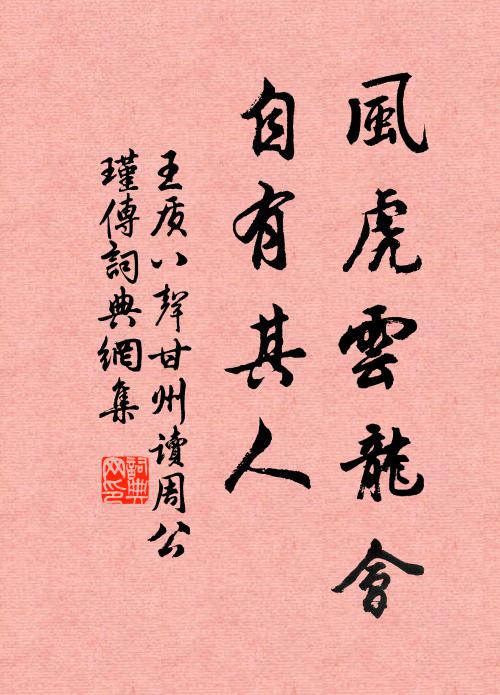 風虎雲龍會
自有其人
王质八聲甘州讀周公
瑾傳詞典網集
詞典
网印